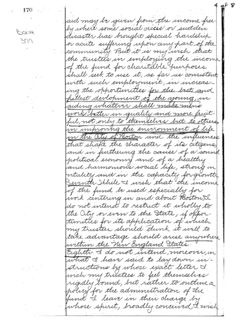 170
4 of 8
aid may be given from the income fre
by when some social areas or sudden
disaster has brought special hardship
or acute suffering upon any part of the
community. But it is my wish that
the trustees in employing the income
of the fund for charitable purposes
shall seek to use it, so far as consistent
with such employment, in increas-
ing the opportunities for the best and
fullest development of the young,
aiding whatever shall make
work better in quality and more fruit-
ful, not only to themselves but to others
in improving the environment of life
in the City of Boston and the influences
that shape the character of its citizens,
and in furthering the cause of a sound
political economy and of a healthy
and harmonious social life, strong in
integrity and in the capacity for growth.
Seventh While I wish that the income
of the fund be used especially for
work centering in and about Boston I
do not intend to restrict it wholly to
the City or even to the State, if oppor-
tunities for its application of which
my trustees should think it well to
take advantage should arise anywhere
within the New England States.
Eighth I do not intend moreover in
what I have said to lay down in-
structions by whose exact letter I
wish my trustees to feel themselves
rigidly bound, but rather to outline a
policy for the administration of the
fund I leave in their charge by
whose spirit, broadly conceived, I wish